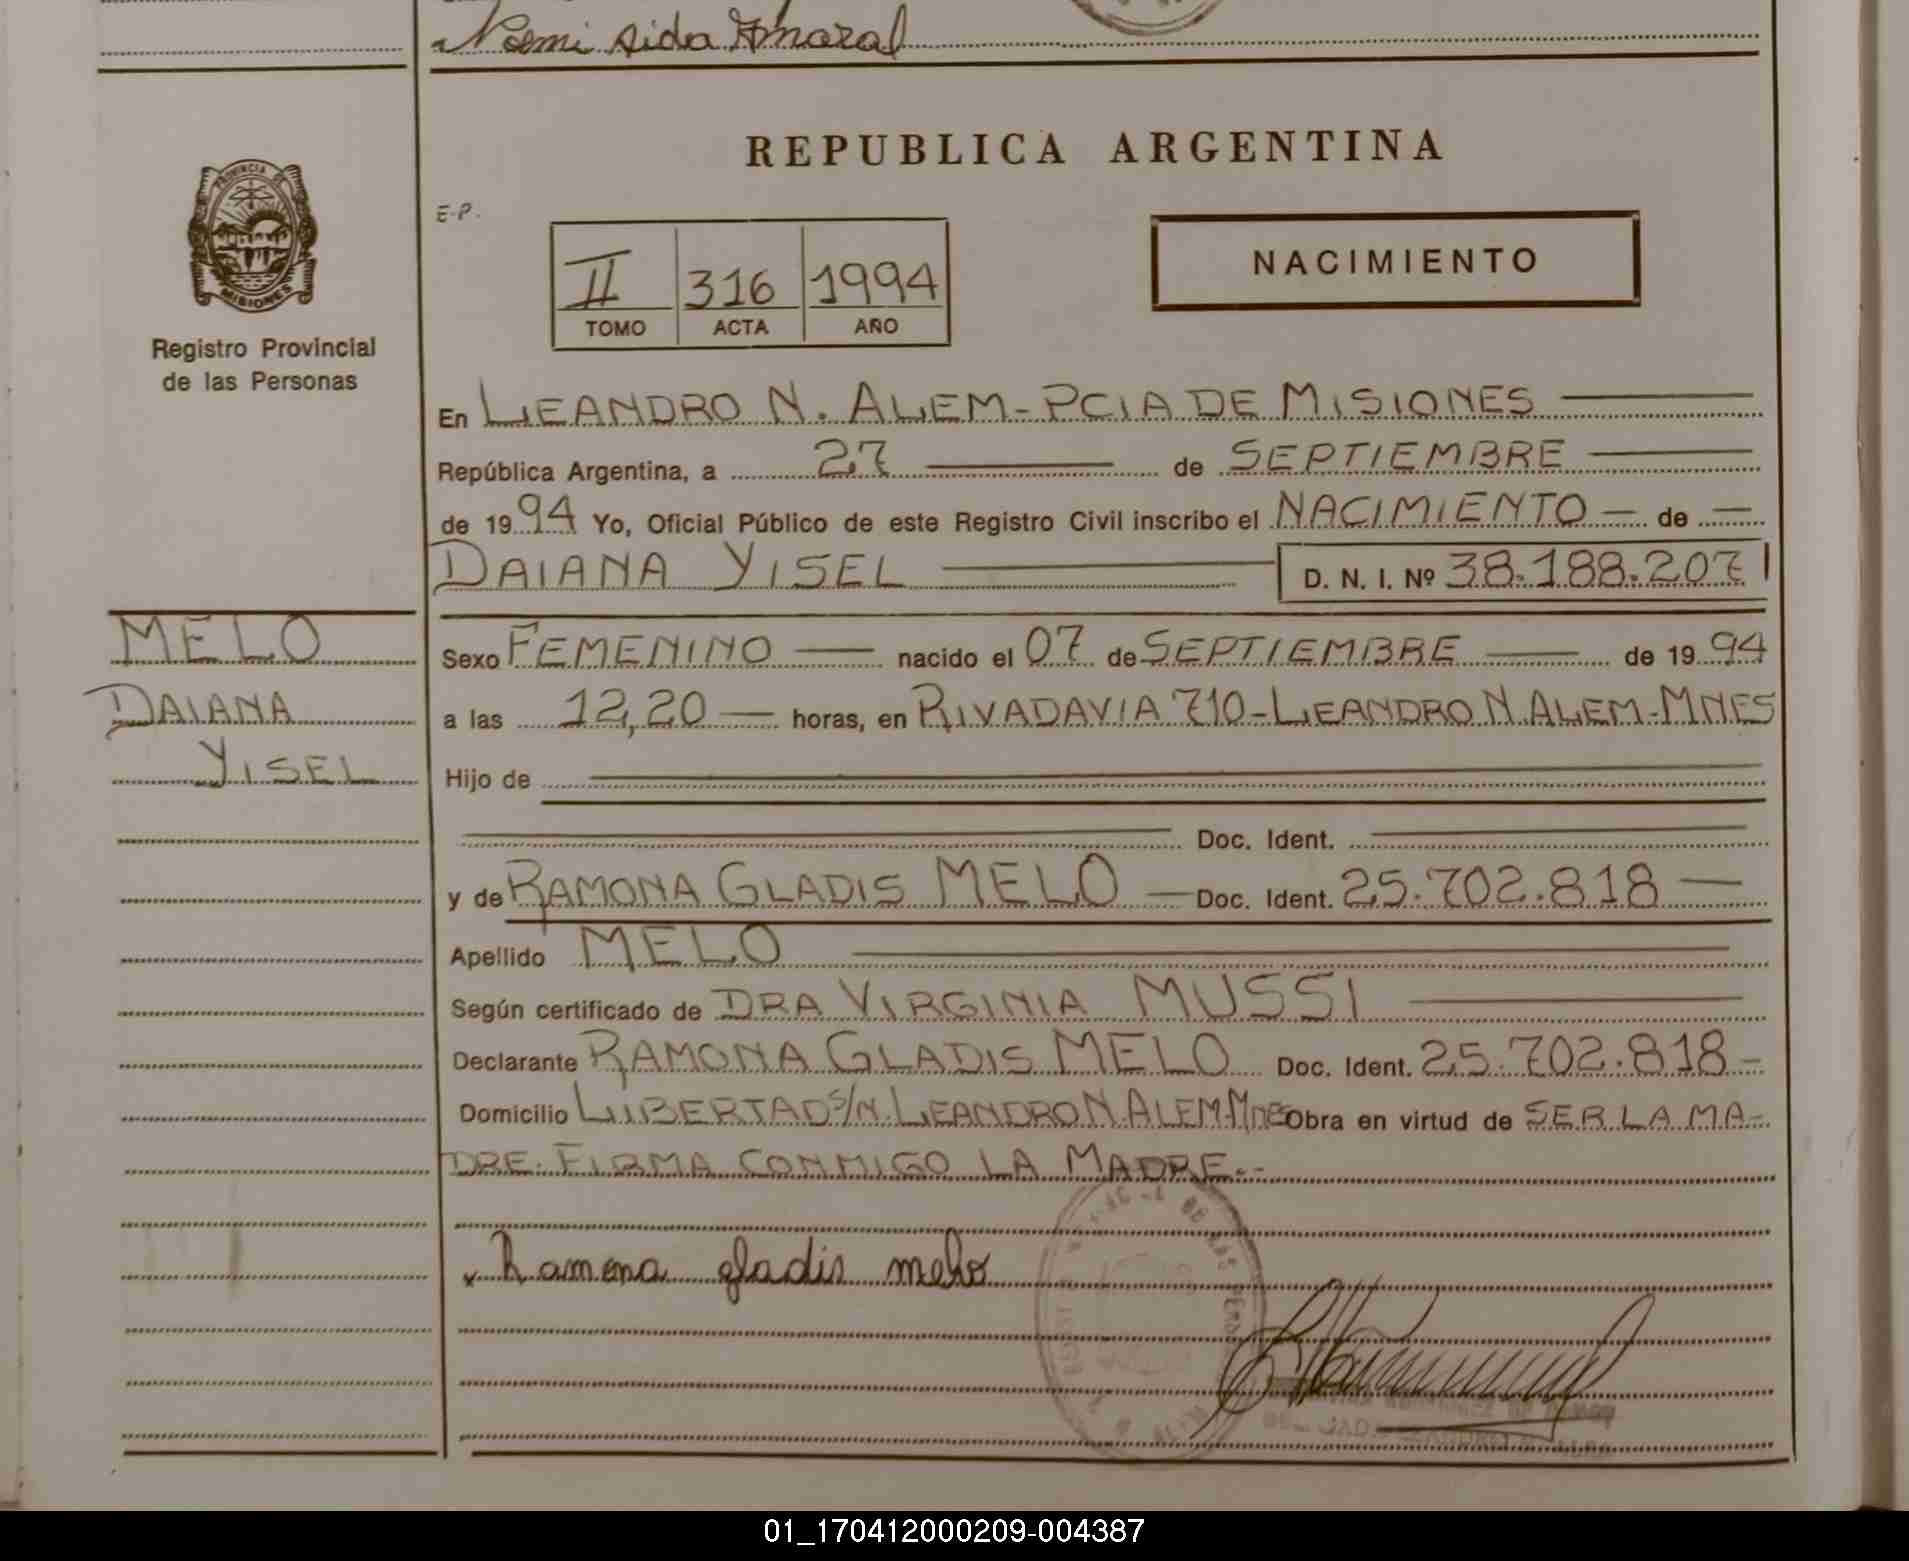 Noemi Aida Amaral
REPUBLICA ARGENTINA
PROVINCIA DE
MISIONES
Registro Provincial
de las Personas
E.P.
II 316 1994
TOMO ACTA AÑO
NACIMIENTO
En LEANDRO N. ALEM-PCIA DE MISIONES
República Argentina, a 27 de SEPTIEMBRE
de 1994 Yo, Oficial Público de este Registro Civil inscribo el NACIMIENTO de
DAIANA YISEL D. N. I. Nº 38.188.207
MELO
DAIANA
YISEL
Sexo FEMENINO nacido el 07 de SEPTIEMBRE de 1994
a las 12,20 horas, en RIVADAVIA 710-LEANDRO N.ALEM-MNES
Hijo de
Doc. Ident.
y de RAMONA GLADIS MELO Doc. Ident. 25.702.818
Apellido MELO
Según certificado de DRA VIRGINIA MUSSI
Declarante RAMONA GLADIS MELO Doc. Ident. 25.702.818-
Domicilio LIBERTAD S/N.LEANDRO N.ALEM-MNES Obra en virtud de SER LA MA-
DRE. FIRMA CONMIGO LA MADRE.-
x Ramona gladis melo
01_170412000209-004387